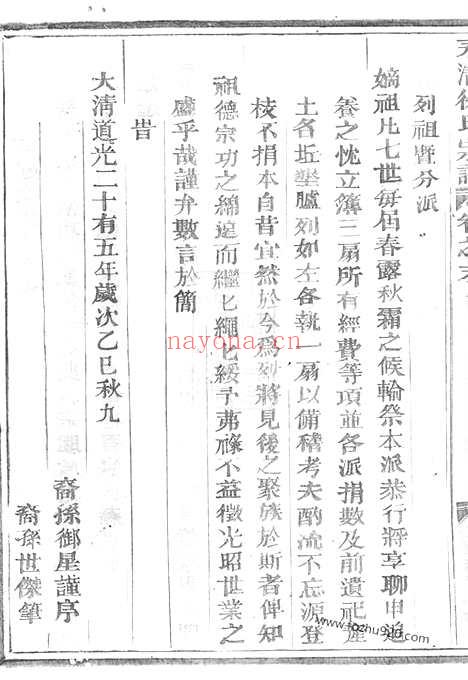 列祖暨分派
嫡祖凡七世每屆春露秋霜之候輪祭本派恭行將享聊申追
養之忱立簿三扇所有經費等項並各派捐數及前遺祀產
土各坵塋臚列如左各執一扇以備稽考夫酌流不忘源登
枝不捐本自昔宜然於今為列將見後之聚族於斯者俾知
祖德宗功之綿遠而繼匕繩匕綏予弗祿不益徵光昭世業之
盛乎哉謹弁數言於簡
旹
大淸道光二十有五年歲次乙巳秋九
裔孫御星謹序
裔孫世傑筆
nayona.cn
www.fozhu920.com